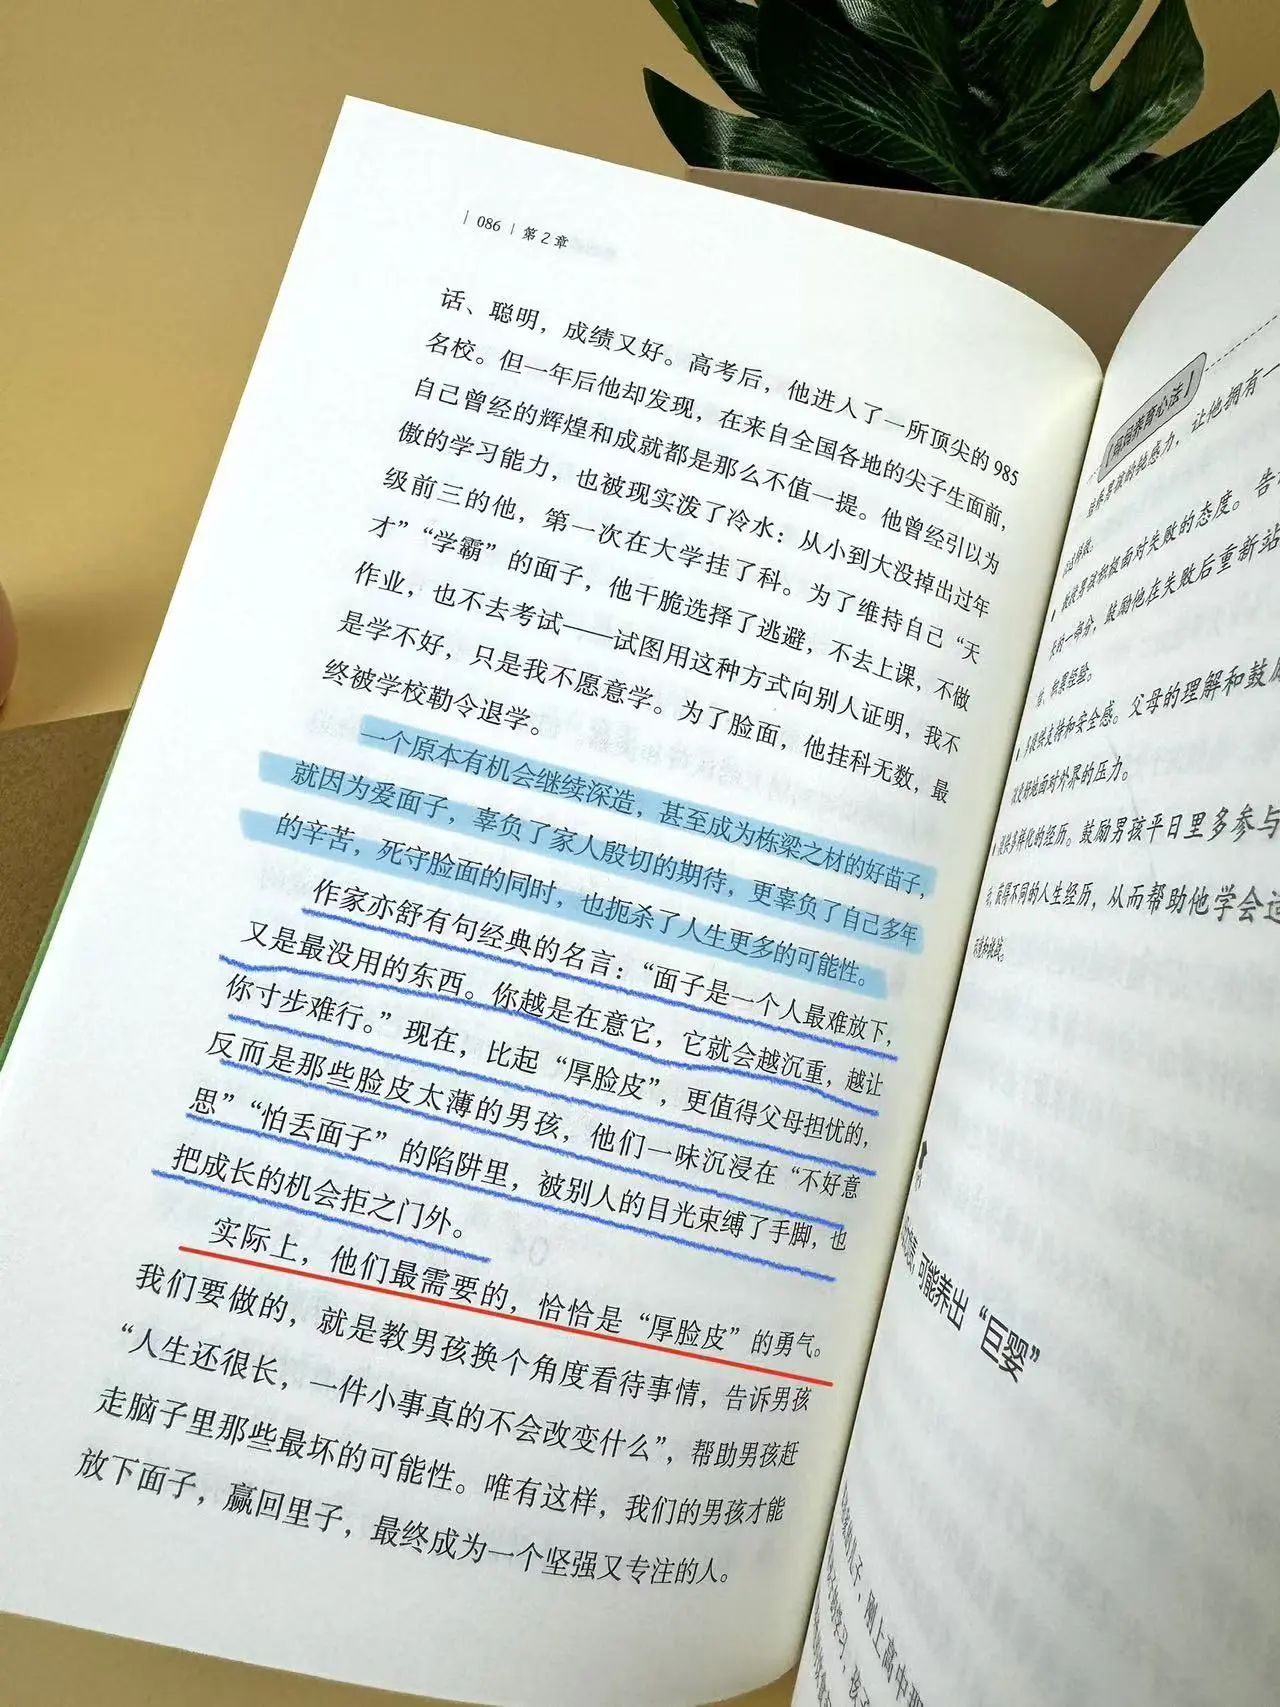 086 | 第 2 章
话、聪明，成绩又好。高考后，他进入了一所顶尖的 985
名校。但一年后他却发现，在来自全国各地的尖子生面前，
自己曾经的辉煌和成就都是那么不值一提。他曾经引以为
傲的学习能力，也被现实泼了冷水：从小到大没掉出过年
级前三的他，第一次在大学挂了科。为了维持自己“天
才”“学霸”的面子，他干脆选择了逃避，不去上课，不做
作业，也不去考试——试图用这种方式向别人证明，我不
是学不好，只是我不愿意学。为了脸面，他挂科无数，最
终被学校勒令退学。
一个原本有机会继续深造，甚至成为栋梁之材的好苗子，
就因为爱面子，辜负了家人殷切的期待，更辜负了自己多年
的辛苦，死守脸面的同时，也扼杀了人生更多的可能性。
作家亦舒有句经典的名言：“面子是一个人最难放下，
又是最没用的东西。你越是在意它，它就会越沉重，越让
你寸步难行。”现在，比起“厚脸皮”，更值得父母担忧的，
反而是那些脸皮太薄的男孩，他们一味沉浸在“不好意
思”“怕丢面子”的陷阱里，被别人的目光束缚了手脚，也
把成长的机会拒之门外。
实际上，他们最需要的，恰恰是“厚脸皮”的勇气。
我们要做的，就是教男孩换个角度看待事情，告诉男孩
“人生还很长，一件小事真的不会改变什么”，帮助男孩赶
走脑子里那些最坏的可能性。唯有这样，我们的男孩才能
放下面子，赢回里子，最终成为一个坚强又专注的人。
养育心法】
培养男孩的钝感力，让他拥有一
教男孩积极面对失败的态度。告
的一部分，鼓励他在失败后重新站
积累经验。
支持和安全感。父母的理解和鼓
更好地面对外界的压力。
多样化的经历。鼓励男孩平日里多参与
获得不同的人生经历，从而帮助他学会
和挑战。
可能养出“巨婴”
刚上高中